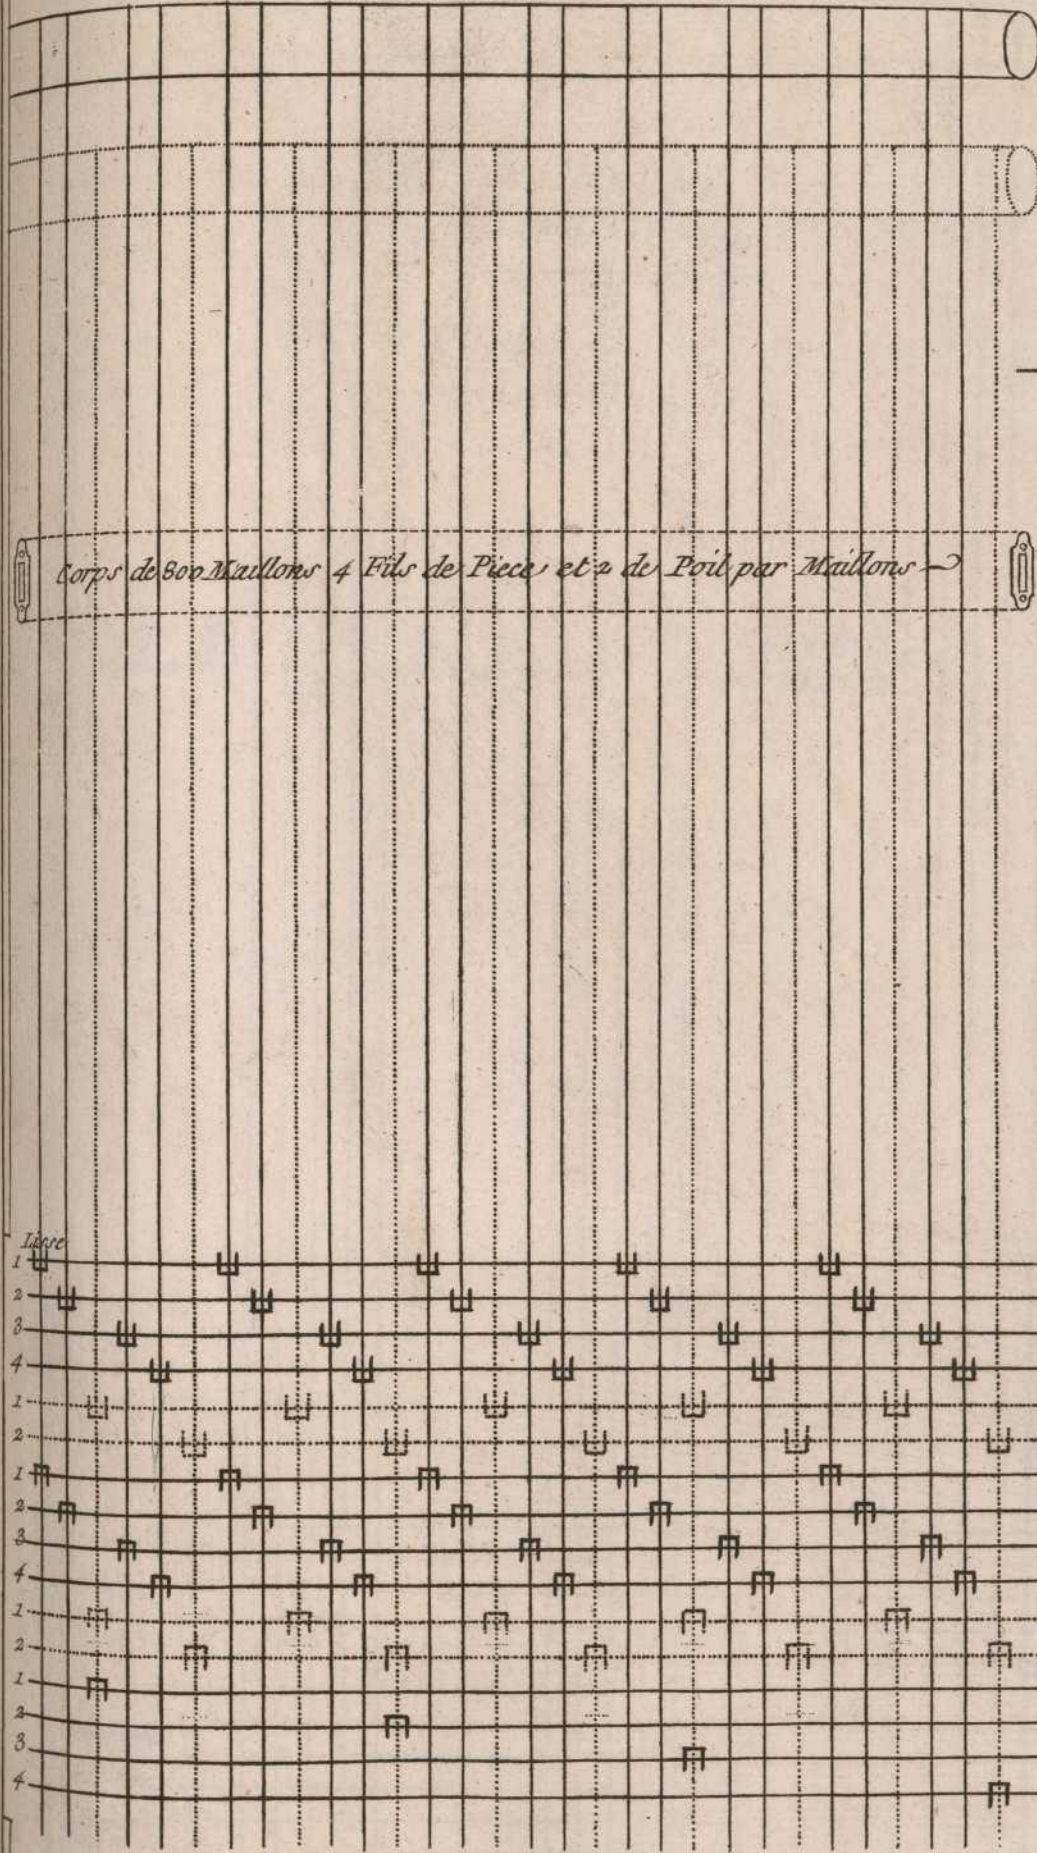 Corps de 800 Maillons 4 Fils de Piece et 2 de Poil par Maillons
Lisse
1
2
3
4
1
2
1
2
3
4
1
2
1
2
3
4